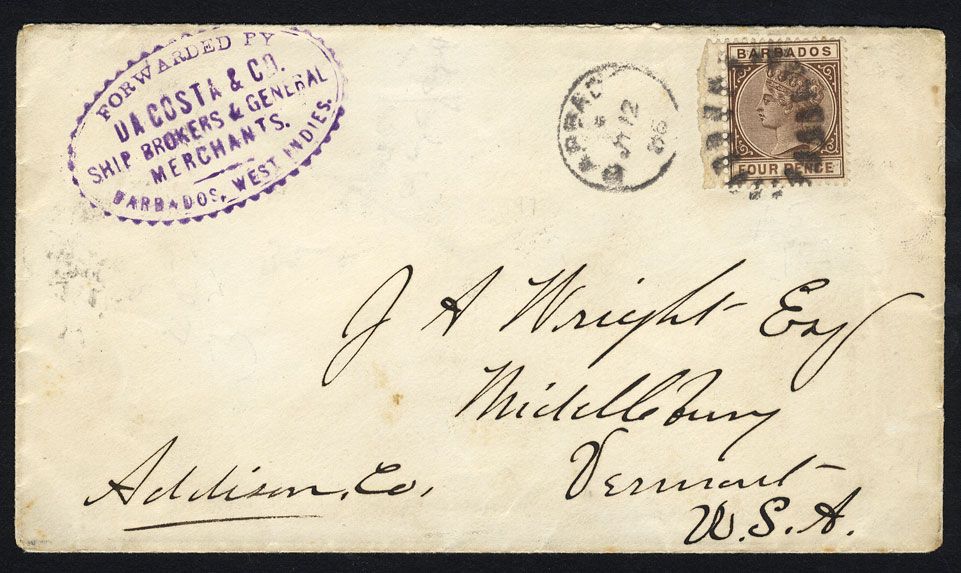 FORWARDED BY
DA COSTA & CO.
SHIP BROKERS & GENERAL
MERCHANTS.
BARBADOS, WEST INDIES.
BARBADOS
JY 12
86
BARBADOS
FOUR PENCE
J A Wright Esq
Middlebury
Vermont
W.S.A.
Addison, Co,